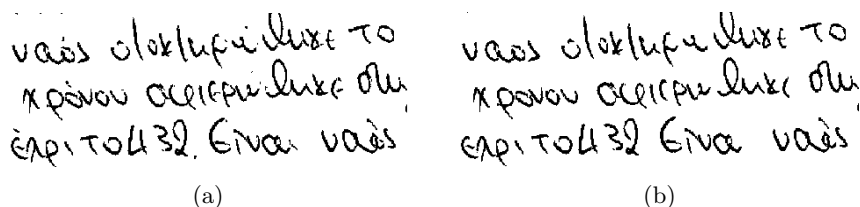 ναός ολοκληρώθηκε το
χρόνου αφιερώθηκε στη
έχρι το 432. Είναι ναός
(a)
ναός ολοκληρώθηκε το
χρόνου αφιερώθηκε στη
έχρι το 432 Είνα ναός
(b)